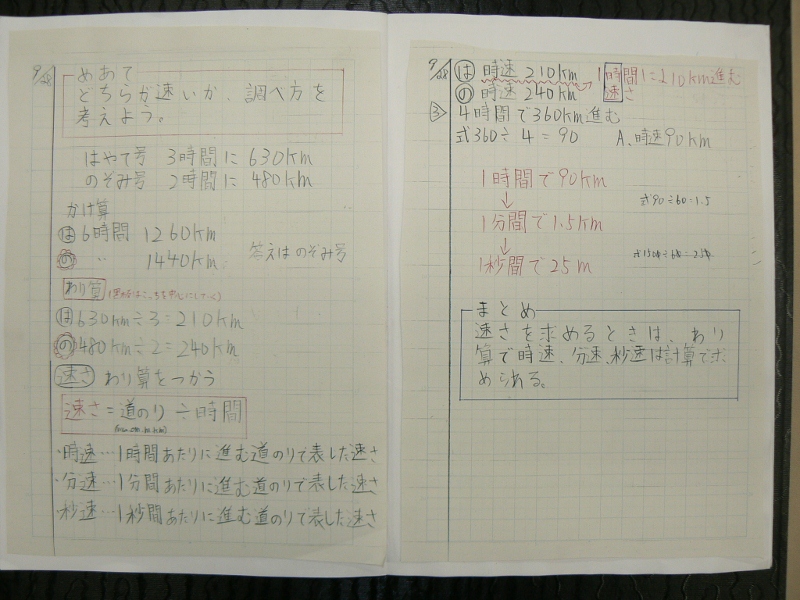 9/28
めあて
どちらが速いか、調べ方を
考えよう。
はやて号 3時間に 630km
のぞみ号 2時間に 480km
かけ算
は 6時間 1260km
の 〃 1440km 答えはのぞみ号
わり算
は 630km÷3=210km
の 480km÷2=240km
速さ わり算をつかう
速さ=道のり÷時間
・時速…1時間あたりに進む道のりで表した速さ
・分速…1分間あたりに進む道のりで表した速さ
・秒速…1秒間あたりに進む道のりで表した速さ
9/28
は 時速210km 1時間に210km進む
の 時速240km 速さ
3 4時間で360km進む
式360÷4=90 A、時速90km
1時間で90km
↓ 式90÷60=1.5
1分間で1.5km
↓
1秒間で25m
まとめ
速さを求めるときは、わり
算で時速、分速、秒速は計算で求
められる。